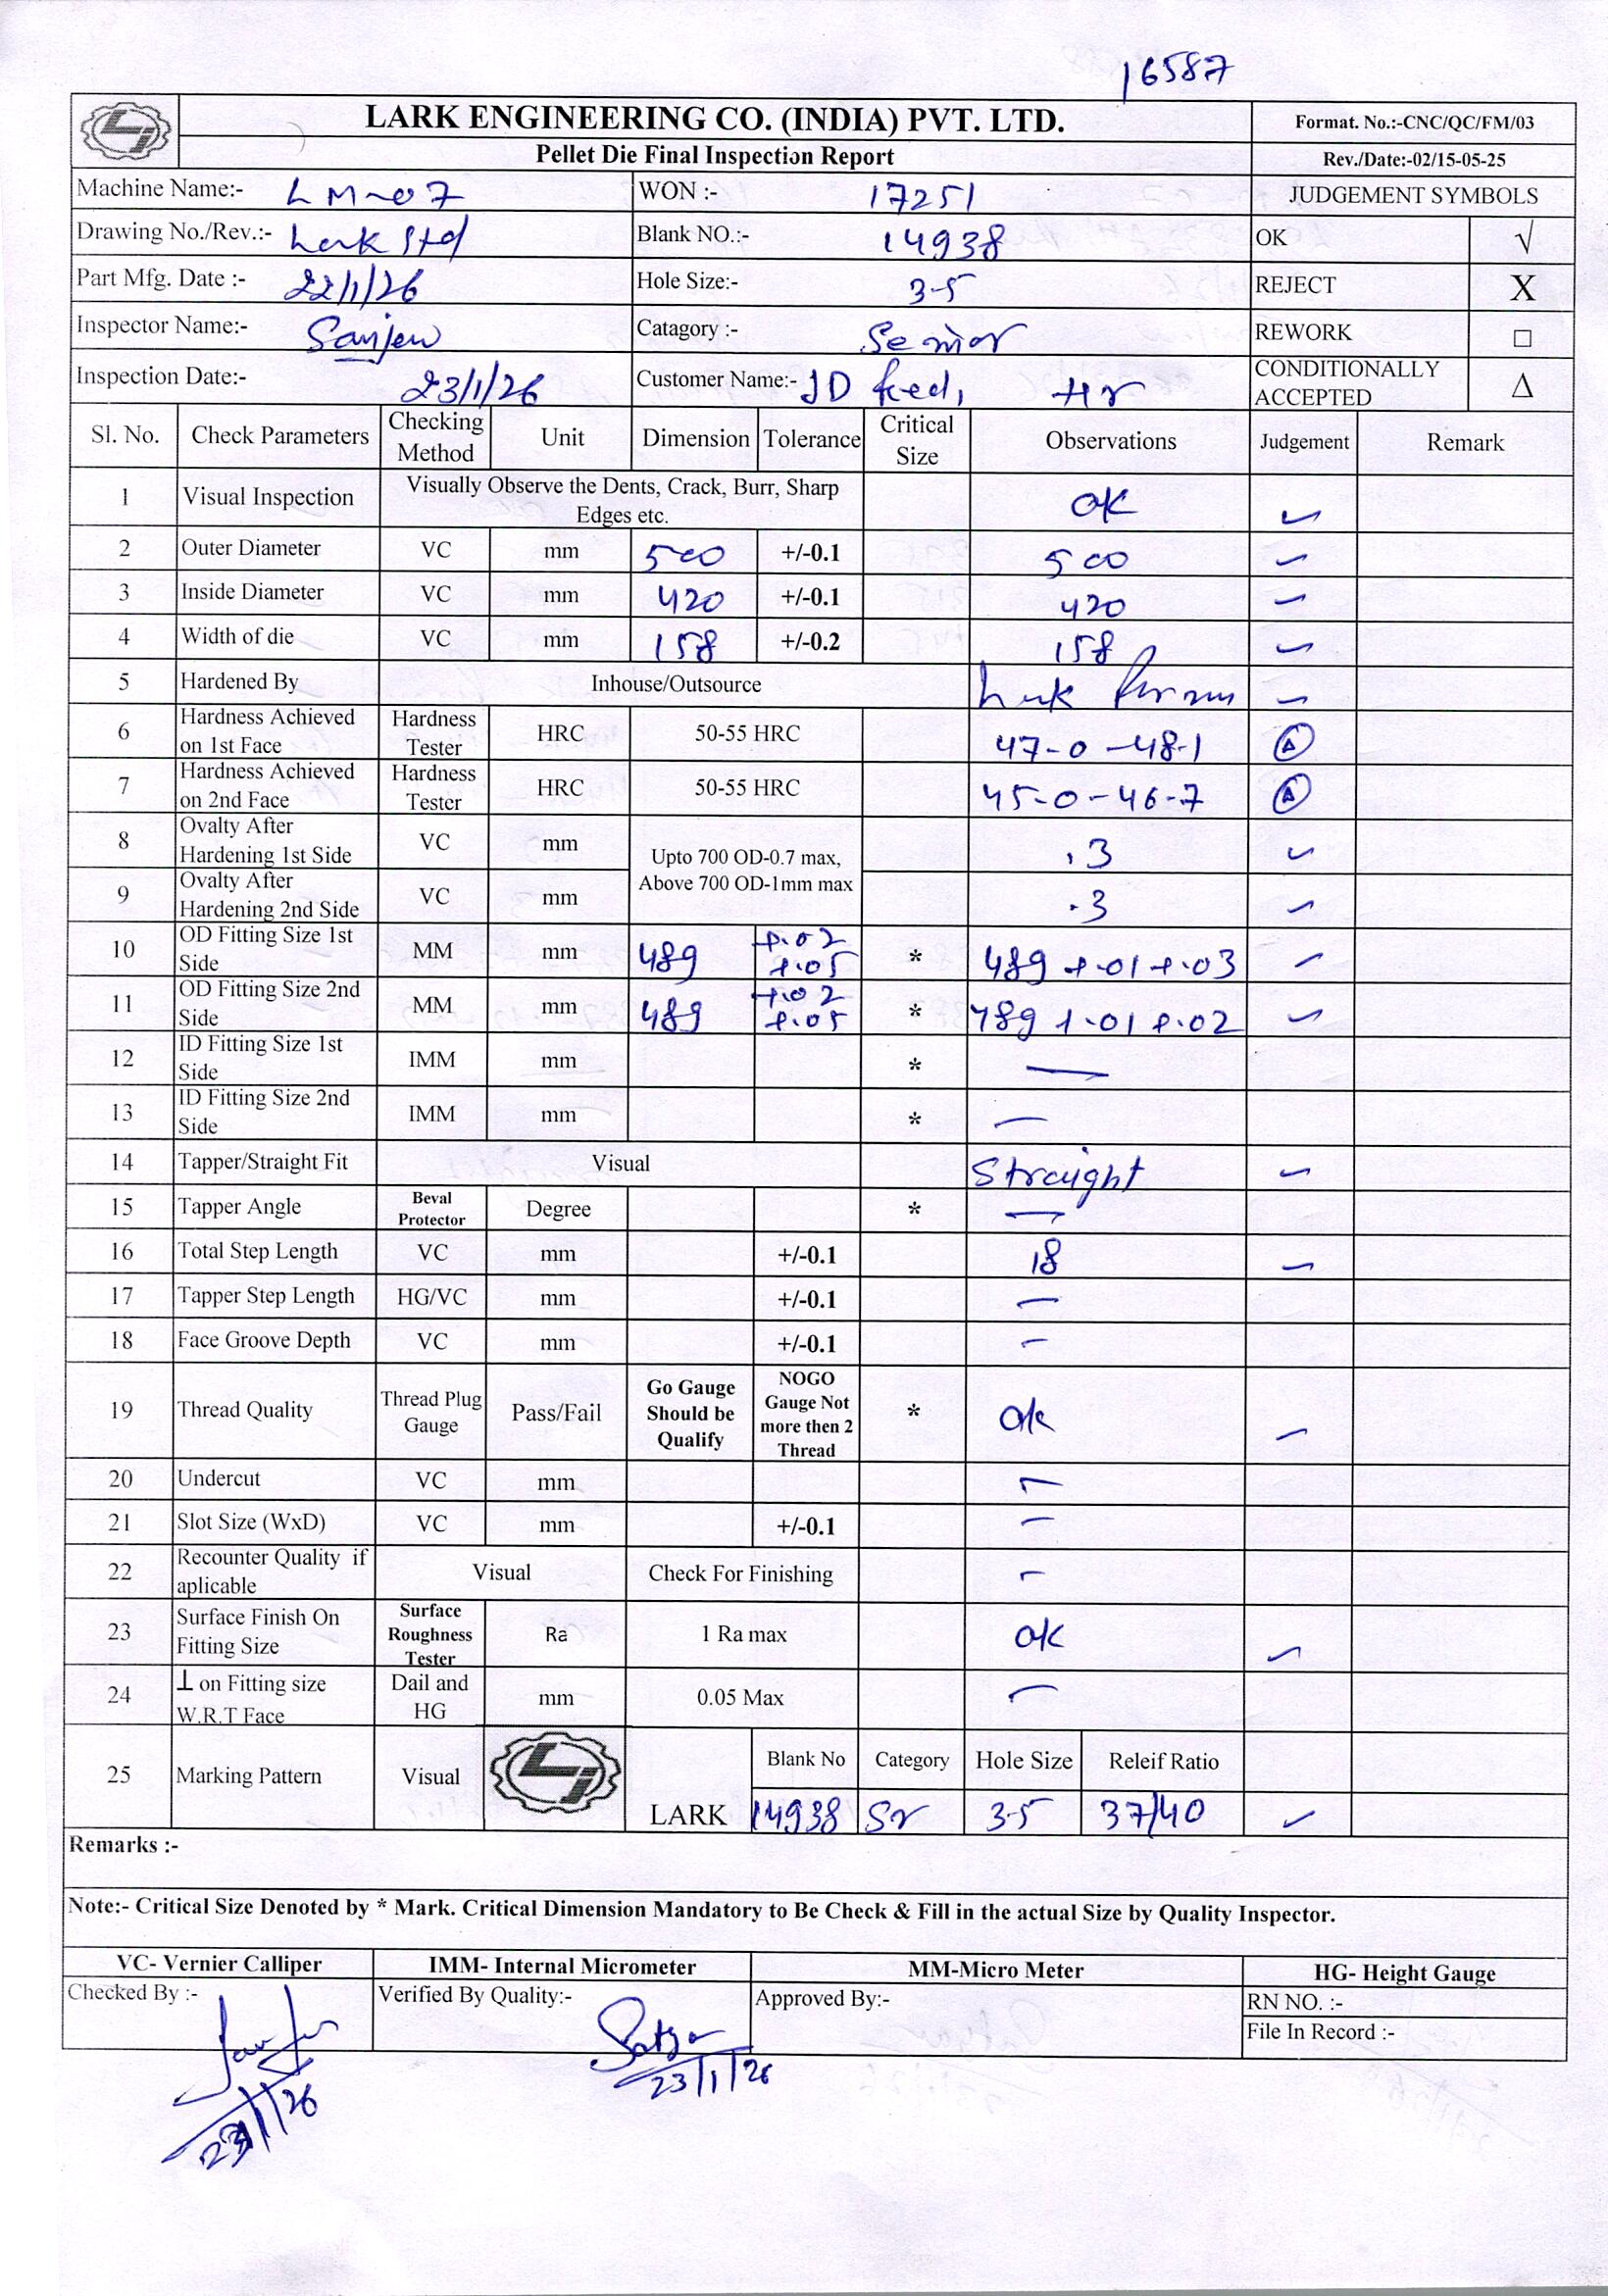 16587
LARK ENGINEERING CO. (INDIA) PVT. LTD.
Format. No.:-CNC/QC/FM/03
Pellet Die Final Inspection Report
Rev./Date:-02/15-05-25
Machine Name:- LM-07 WON :- 17251 JUDGEMENT SYMBOLS
Drawing No./Rev.:- Lark Std Blank NO.:- 14938 OK √
Part Mfg. Date :- 22/1/26 Hole Size:- 3-5 REJECT X
Inspector Name:- Sanjeev Catagory :- Senior REWORK □
Inspection Date:- 23/1/26 Customer Name:- JD feed, Hr CONDITIONALLY ACCEPTED Δ
Sl. No. Check Parameters Checking Method Unit Dimension Tolerance Critical Size Observations Judgement Remark
1 Visual Inspection Visually Observe the Dents, Crack, Burr, Sharp Edges etc. OK ✓
2 Outer Diameter VC mm 500 +/-0.1 500 ✓
3 Inside Diameter VC mm 420 +/-0.1 420 ✓
4 Width of die VC mm 158 +/-0.2 158 ✓
5 Hardened By Inhouse/Outsource Lark ✓
6 Hardness Achieved on 1st Face Hardness Tester HRC 50-55 HRC 47-0-48-1 Δ
7 Hardness Achieved on 2nd Face Hardness Tester HRC 50-55 HRC 45-0-46-7 Δ
8 Ovalty After Hardening 1st Side VC mm Upto 700 OD-0.7 max, Above 700 OD-1mm max .3 ✓
9 Ovalty After Hardening 2nd Side VC mm .3 ✓
10 OD Fitting Size 1st Side MM mm 489 +.02 +.05 * 489 +.01 +.03 ✓
11 OD Fitting Size 2nd Side MM mm 489 +.02 +.05 * 489 +.01 +.02 ✓
12 ID Fitting Size 1st Side IMM mm * —
13 ID Fitting Size 2nd Side IMM mm * —
14 Tapper/Straight Fit Visual Straight ✓
15 Tapper Angle Beval Protector Degree * —
16 Total Step Length VC mm +/-0.1 18 ✓
17 Tapper Step Length HG/VC mm +/-0.1 —
18 Face Groove Depth VC mm +/-0.1 —
19 Thread Quality Thread Plug Gauge Pass/Fail Go Gauge Should be Qualify NOGO Gauge Not more then 2 Thread * ok ✓
20 Undercut VC mm —
21 Slot Size (WxD) VC mm +/-0.1 —
22 Recounter Quality if aplicable Visual Check For Finishing —
23 Surface Finish On Fitting Size Surface Roughness Tester Ra 1 Ra max ok ✓
24 ⊥ on Fitting size W.R.T Face Dail and HG mm 0.05 Max —
25 Marking Pattern Visual LARK Blank No Category Hole Size Releif Ratio
14938 Sr 3-5 37/40 ✓
Remarks :-
Note:- Critical Size Denoted by * Mark. Critical Dimension Mandatory to Be Check & Fill in the actual Size by Quality Inspector.
VC- Vernier Calliper IMM- Internal Micrometer MM-Micro Meter HG- Height Gauge
Checked By :- Verified By Quality:- Approved By:- RN NO. :-
File In Record :-
23/1/26
23/1/26